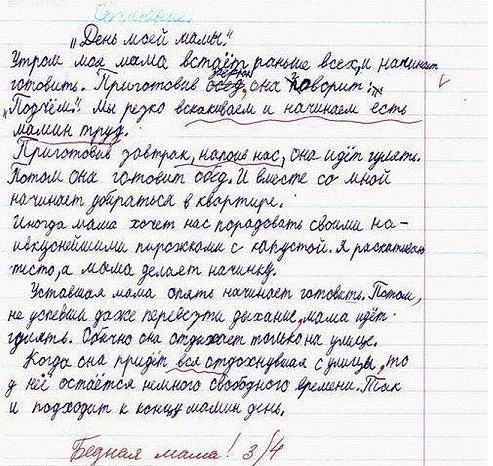 Сочинение.
"День моей мамы."
Утром моя мама встаёт раньше всех, и начинает
готовить. Приготовив завтрак обед, она говорит:
"Подъём!" Мы резко вскакиваем и начинаем есть
мамин труд.
Приготовив завтрак, напоив нас, она идёт гулять.
Потом она готовит обед. И вместе со мной
начинает убираться в квартире.
Иногда мама хочет нас порадовать своими на-
ивкуснейшими пирожками с капустой. Я раскатываю
тесто, а мама делает начинку.
Уставшая мама опять начинает готовить. Потом,
не успевши даже перевезти дыхание, мама идёт
гулять. Обычно она отдыхает только на улице.
Когда она придёт вся отдохнувшая с улицы, то
у неё остаётся немного свободного времени. Так
и подходит к концу мамин день.
Бедная мама! 3/4